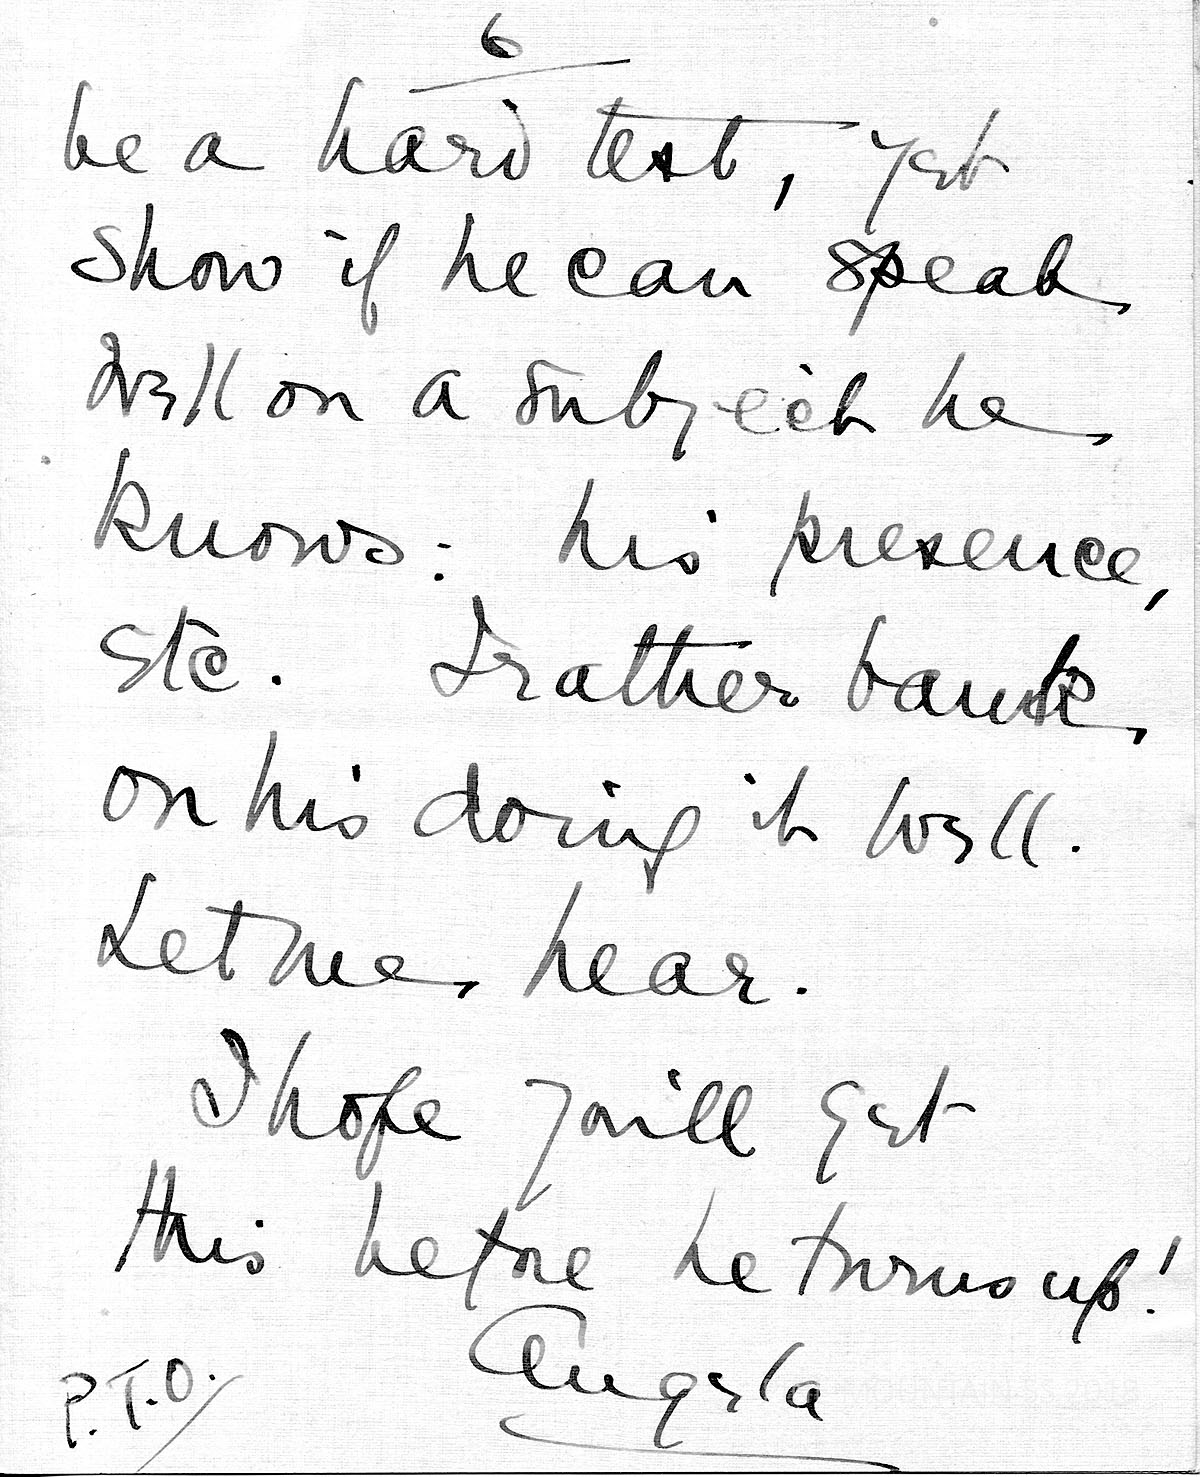 6
be a hard test, yet
show if he can speak
well on a subject he
knows: his presence,
etc. I rather bank
on his doing it well.
Let me hear.
I hope you'll get
this before he turns up!
Angela
P.T.O.